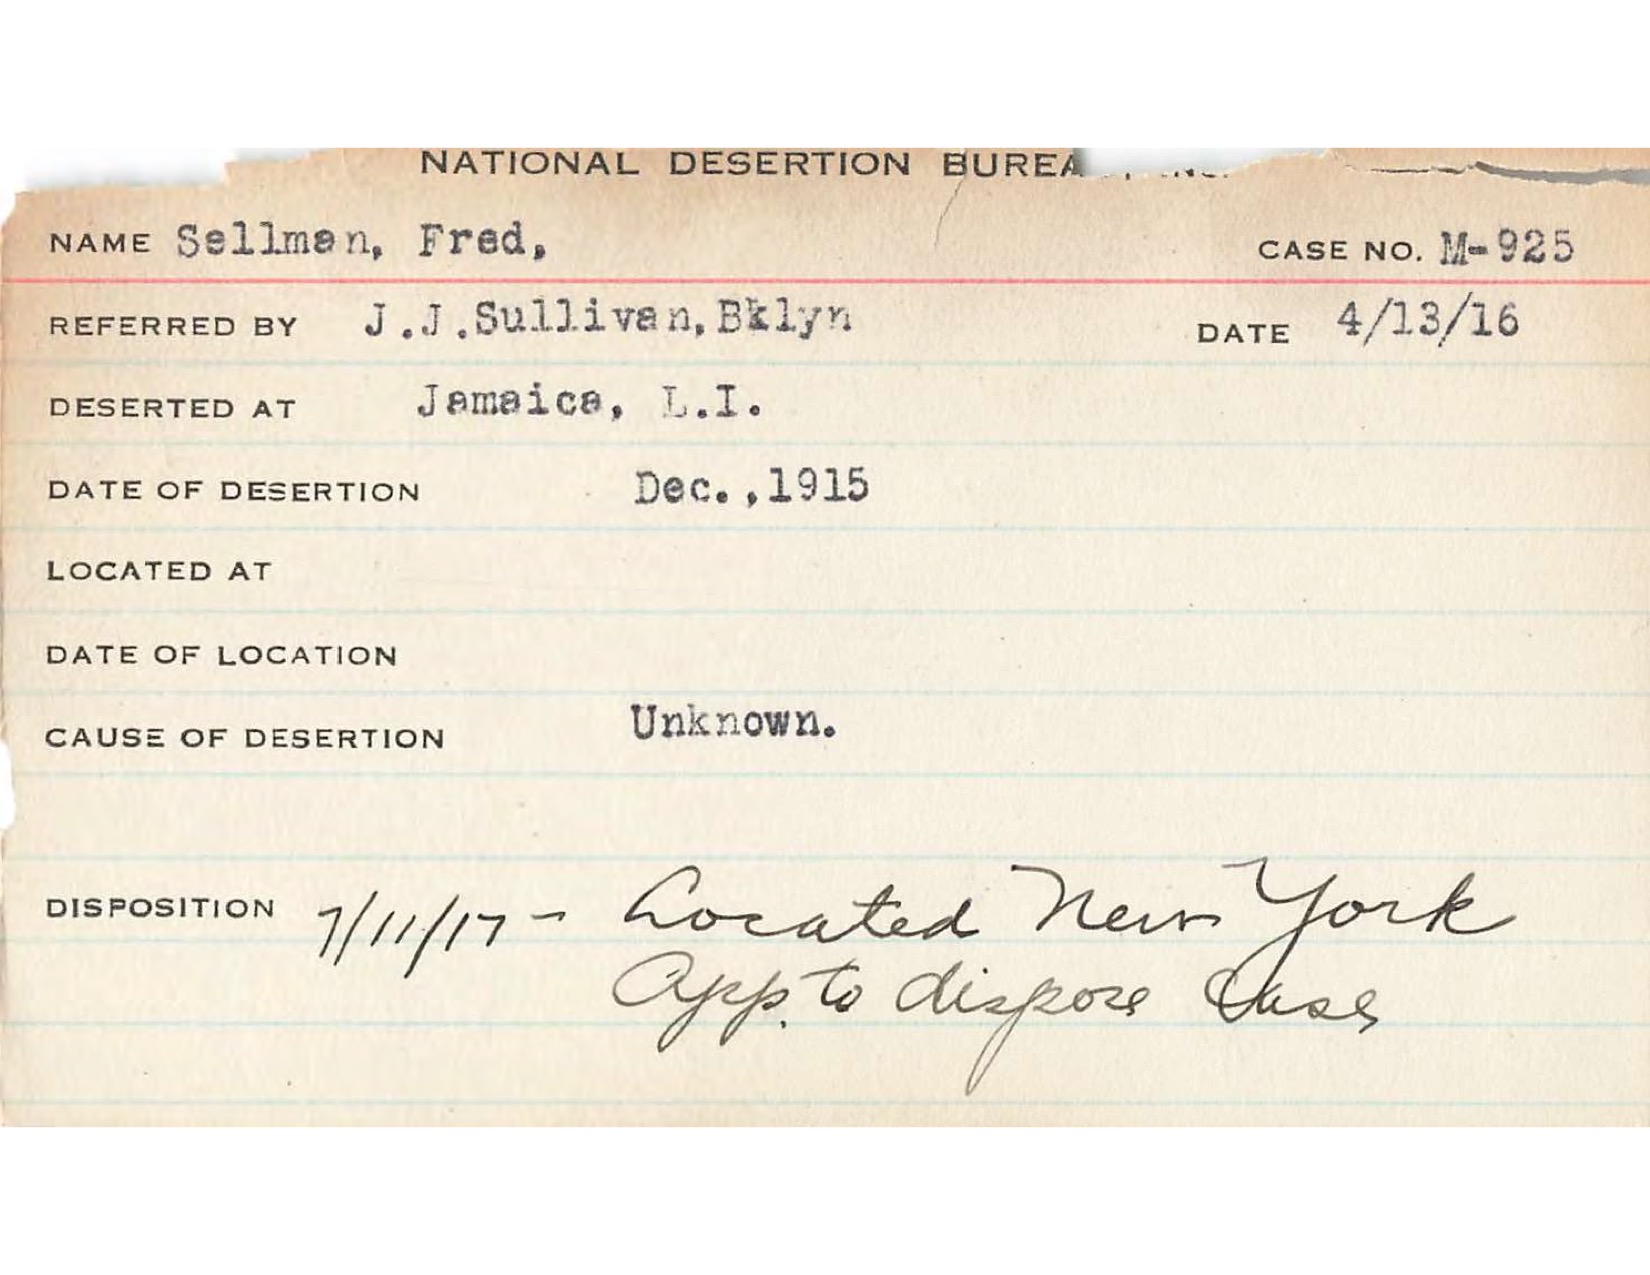 NATIONAL DESERTION BUREA
NAME Sellman, Fred, CASE NO. M-925
REFERRED BY J.J.Sullivan,Bklyn DATE 4/13/16
DESERTED AT Jamaica, L.I.
DATE OF DESERTION Dec.,1915
LOCATED AT
DATE OF LOCATION
CAUSE OF DESERTION Unknown.
DISPOSITION 7/11/17 - Located New York
App. to dispose Case